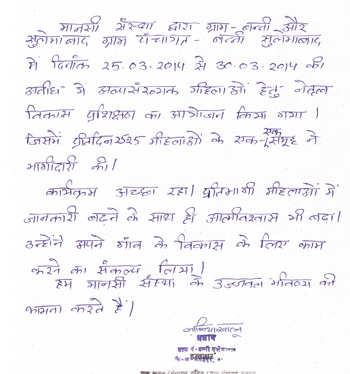 मानसी संस्था द्वारा ग्राम - बन्नी और
सुलेमाबाद ग्राम पंचायत - बन्नी सुलेमाबाद
में दिनांक 25.03.2014 से 30.03.2014 की
अवधि में अल्पसंख्यक महिलाओं हेतु नेतृत्व
विकास प्रशिक्षण का आयोजन किया गया ।
जिसमें प्रतिदिन 25 महिलाओं के एक-एक समूह ने
भागीदारी की।
कार्यक्रम अच्छा रहा। प्रतिभागी महिलाओं में
जानकारी बढ़ने के साथ ही आत्मविश्वास भी बढ़ा।
उन्होंने अपने गांव के विकास के लिए काम
करने का संकल्प लिया।
हम मानसी संस्था के उज्जवल भविष्य की
कामना करते हैं।
प्रधान